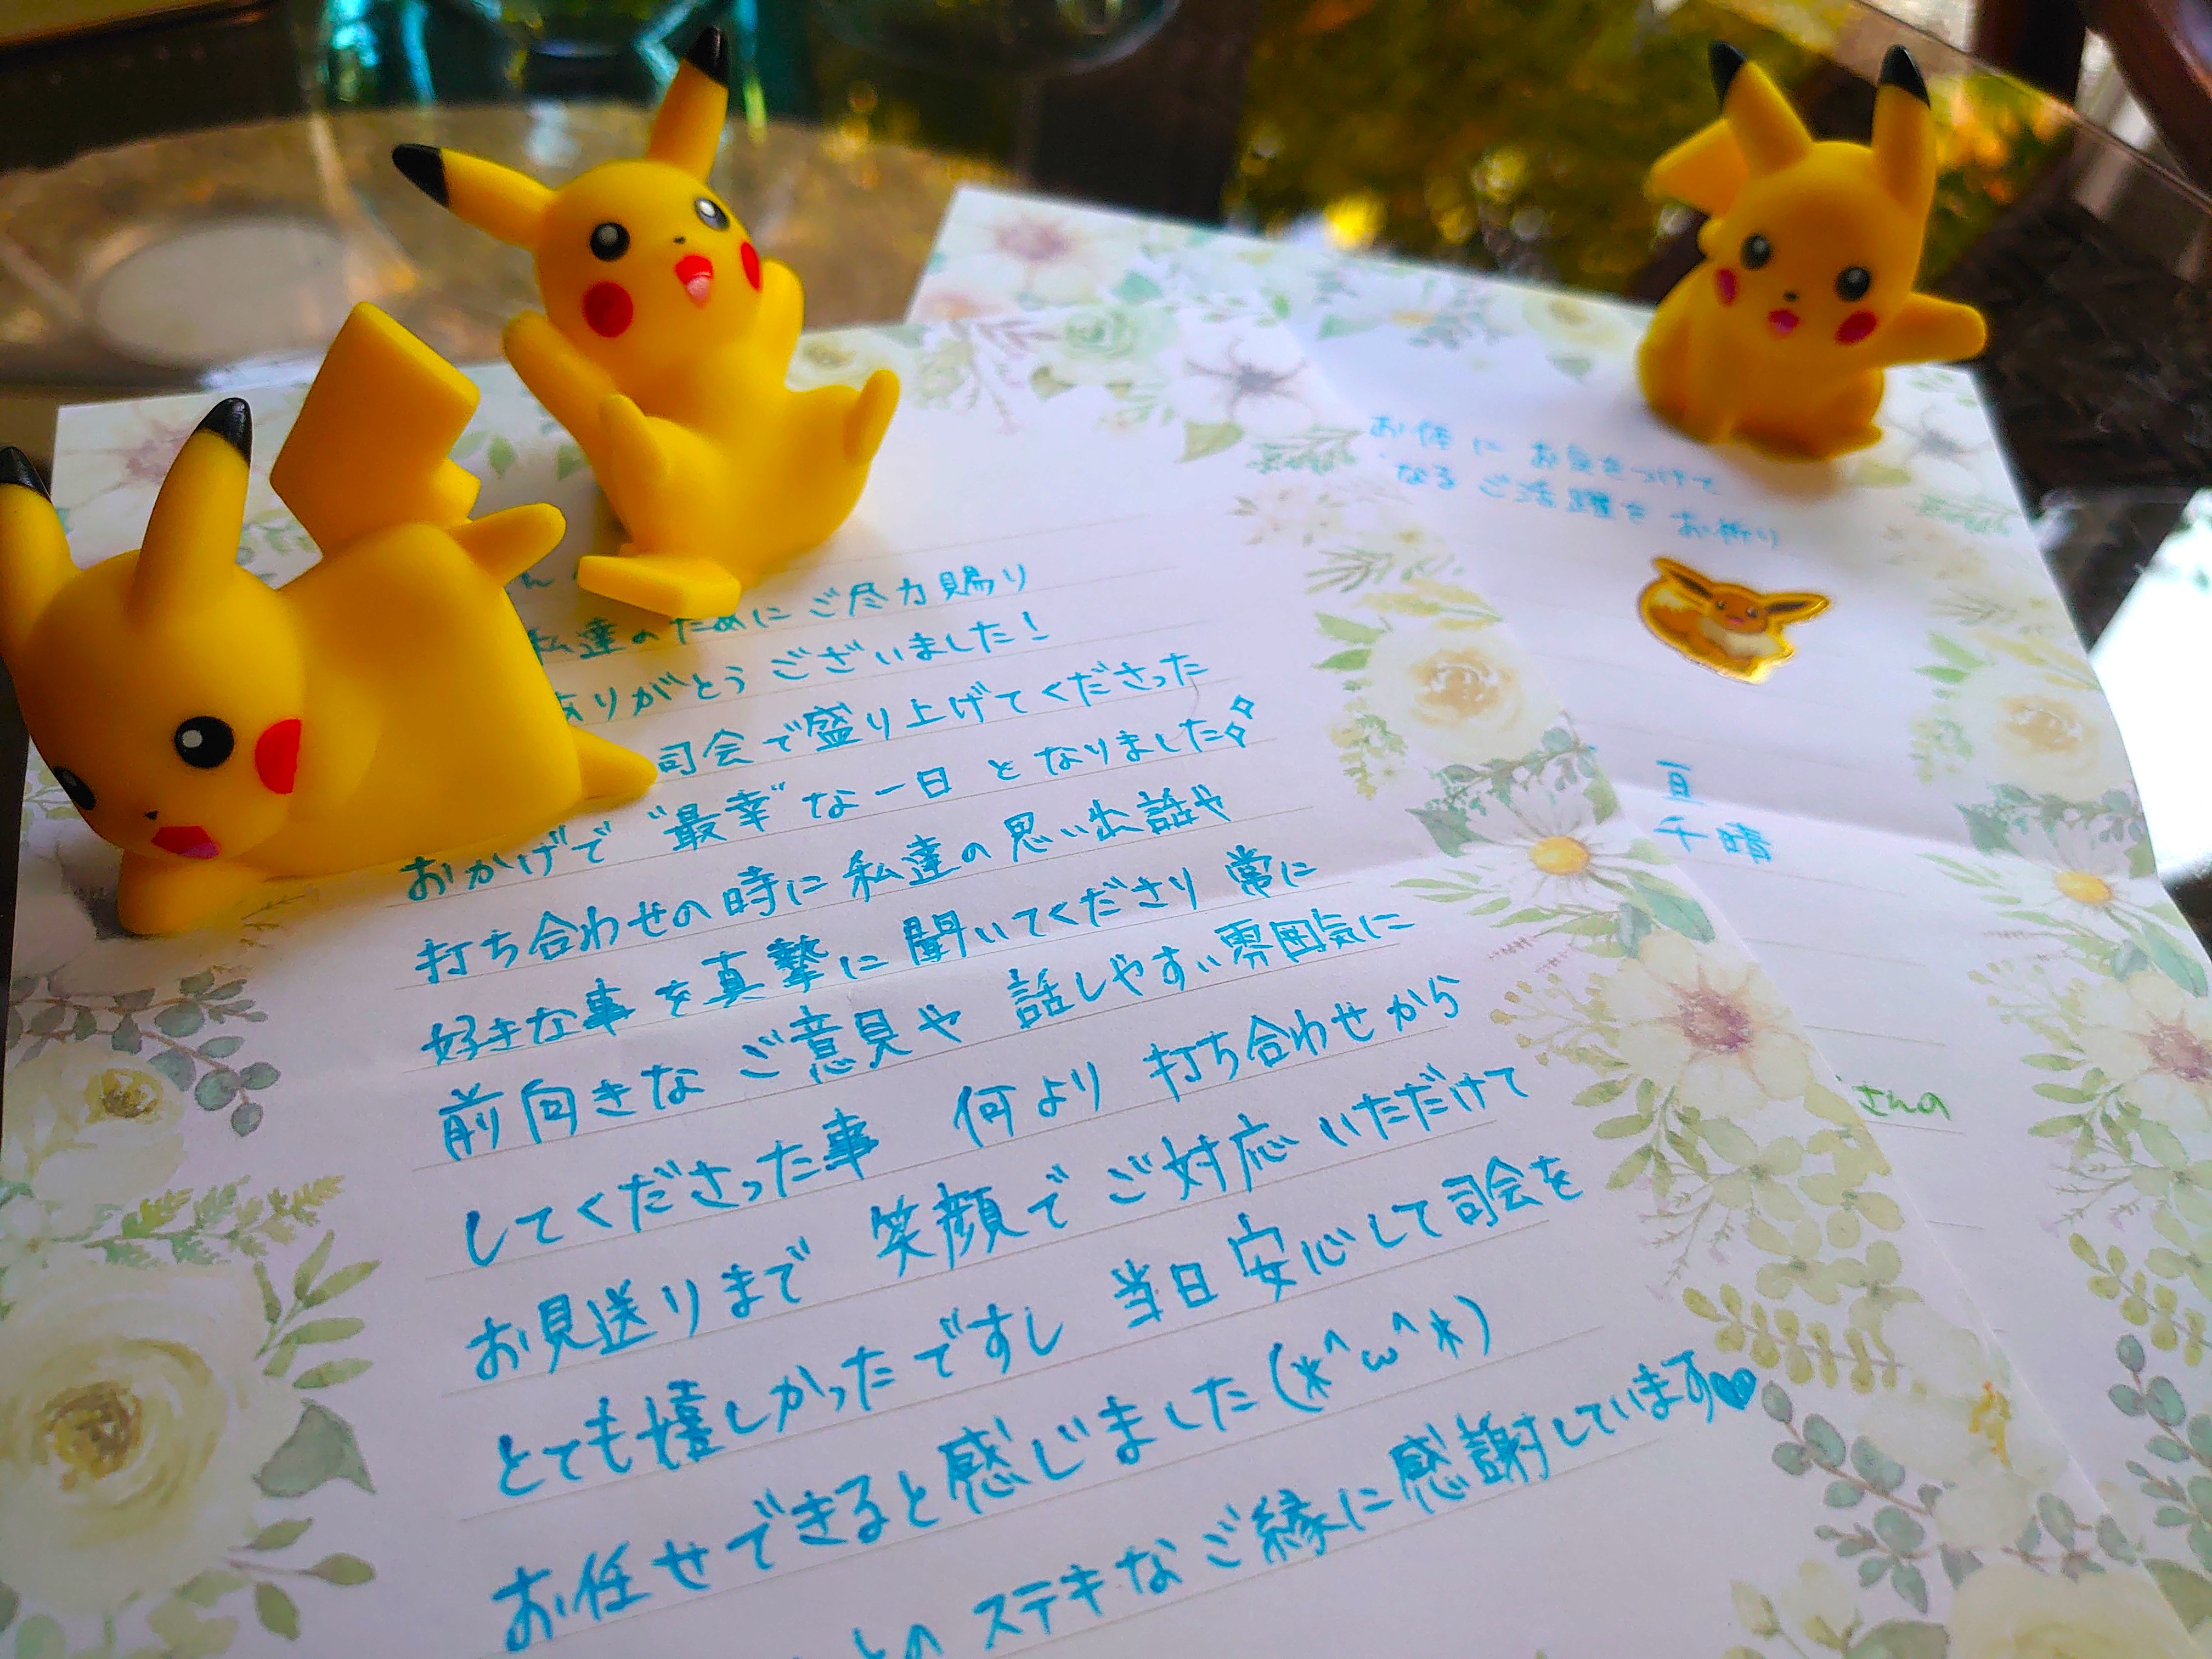 私達のためにご尽力賜り
ありがとうございました!
司会で盛り上げてくださった
おかげで"最幸"な一日となりました
打ち合わせの時に私達の思い出話や
好きな事を真摯に聞いてくださり常に
前向きなご意見や話しやすい雰囲気に
してくださった事 何より打ち合わせから
お見送りまで 笑顔でご対応いただけて
とても嬉しかったですし 当日安心して司会を
お任せできると感じました(*^ω^*)
との ステキなご縁に感謝しています♥
お体にお気をつけて
なるご活躍をお祈り
亘
千晴
さんの